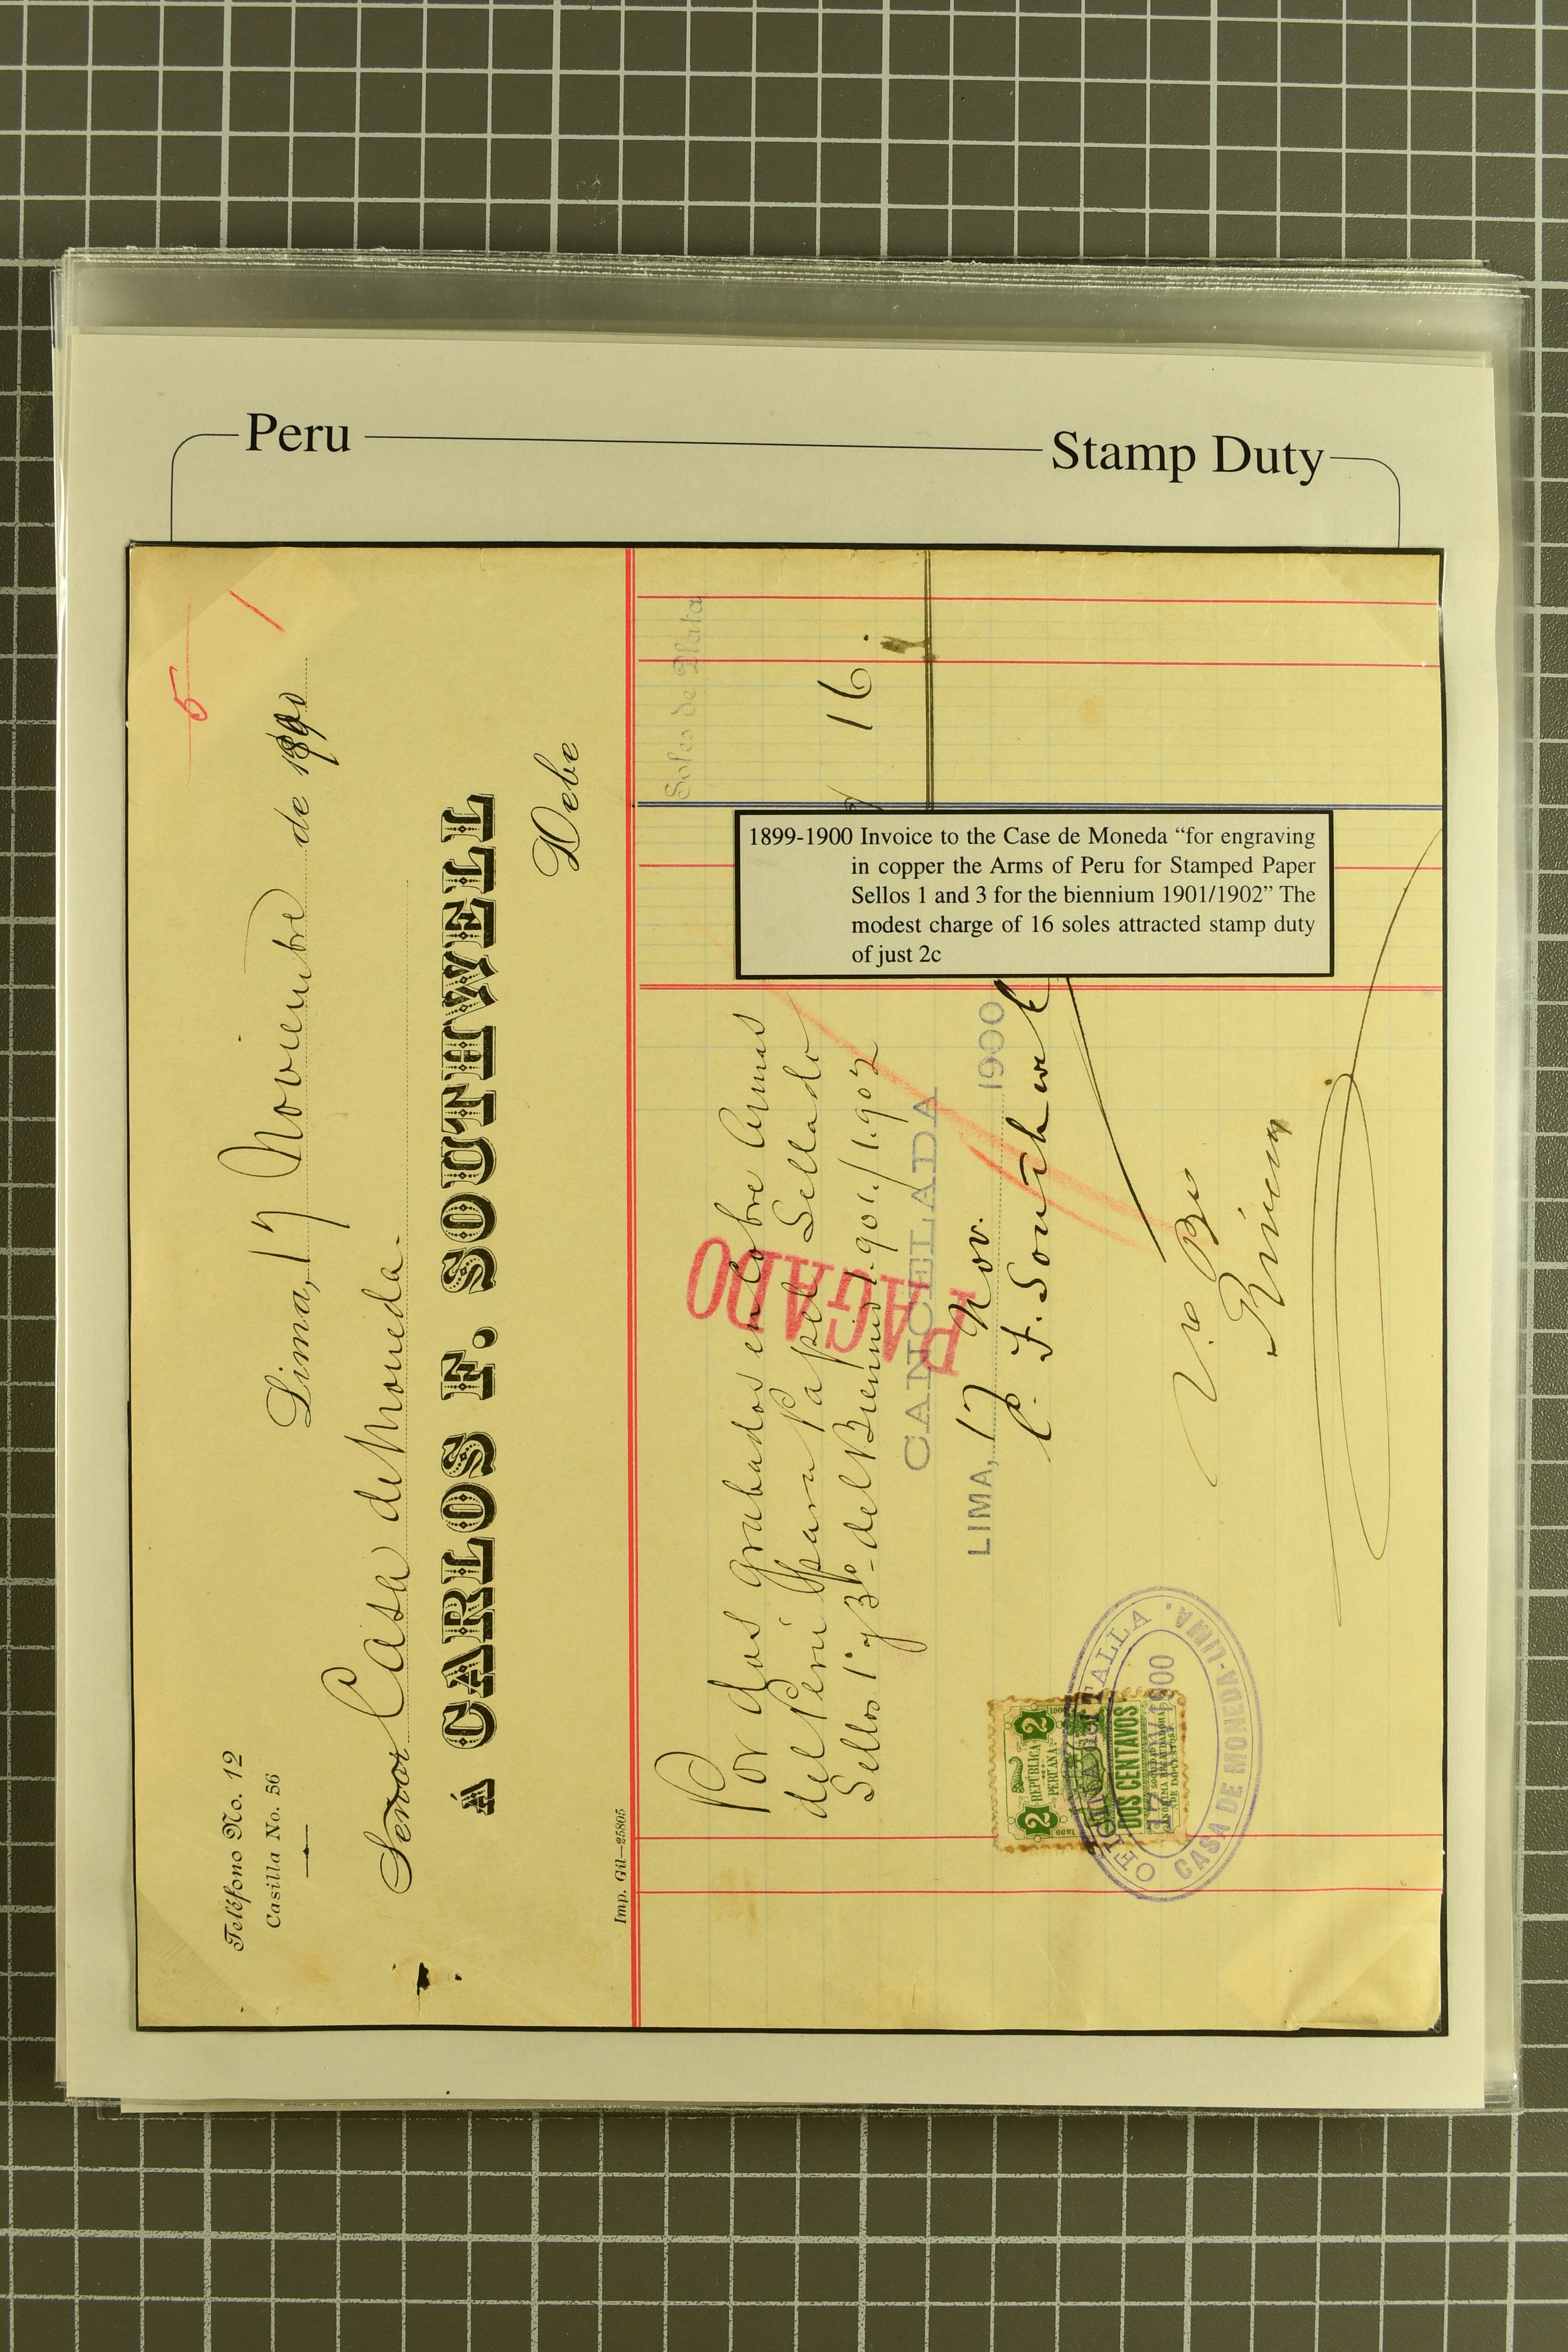 Peru
Stamp Duty
5
Teléfono No. 12
Casilla No. 56
Lima, 17 Noviembre de 1900
Señor Casa de Moneda.
Á CARLOS F. SOUTHWELL
Debe
Imp. Gil—25805
Soles de Plata
Por dos grabados en cobre Armas
del Perú para Papel Sellado
Sellos 1° y 3° del Biennio 1.901/1.902
16
PAGADO
CANCELADA
LIMA, 17 Nov. 1900
C. F. Southwell
V.o Bo
1899-1900 Invoice to the Case de Moneda “for engraving
in copper the Arms of Peru for Stamped Paper
Sellos 1 and 3 for the biennium 1901/1902” The
modest charge of 16 soles attracted stamp duty
of just 2c
2 2
REPÚBLICA
PERUANA
DOS CENTAVOS
OFICINA del TALLA
17 NOV 1900
CASA DE MONEDA-LIMA.